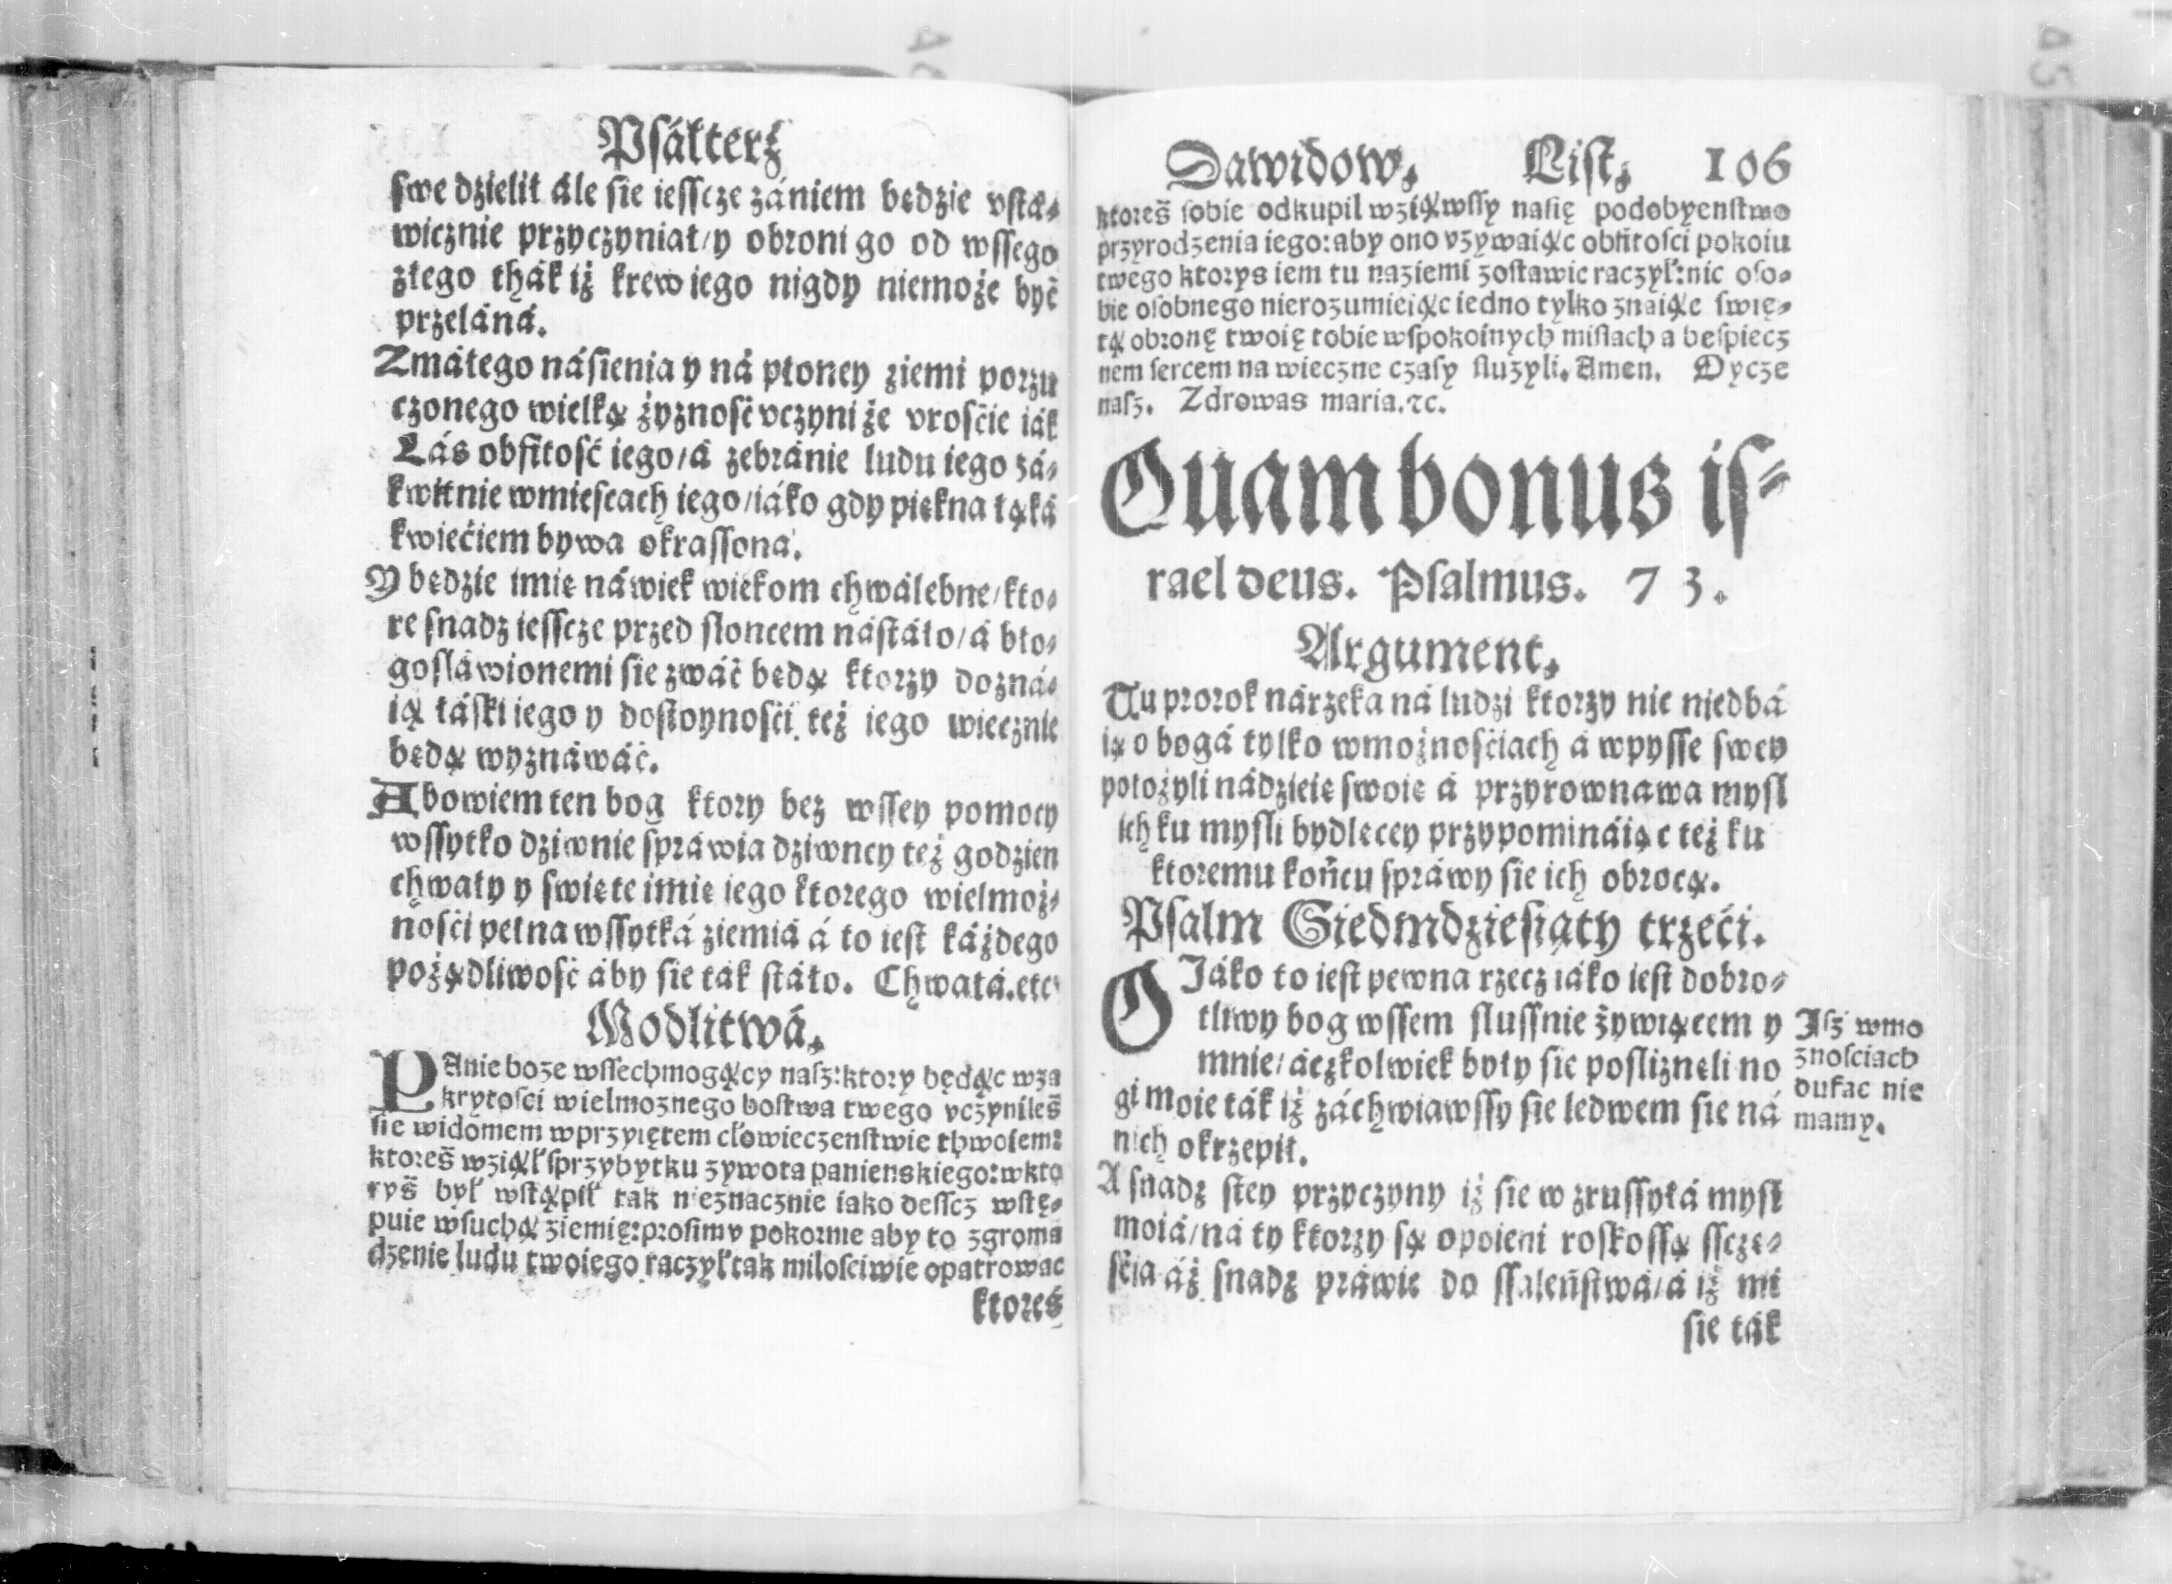 Psáłterz
swe dzielił ále sie iesscze zániem będzie vstá-
wicznie przyczyniał/y obroni go od wssego
złego ták iż krew iego nigdy niemoże być
przeláná.
Zmáłego násienia y ná płoney ziemi porzu
czonego wielką żyzność vczyni że vroście iák
Lás obfitość iego/á zebránie ludu iego zá-
kwitnie wmiescach iego/iáko gdy piękna łąká
kwieciem bywa okrassona.
Y będzie imię náwiek wiekom chwálebne/kto-
re snadz iesscze przed słoncem nástáło/á bło-
gosláwionemi sie zwáć będą ktorzy dozná-
ią łáski iego y dostoyności też iego wiecznie
będą wyznáwáć.
Abowiem ten bog ktory bez wssey pomocy
wssytko dziwnie spráwia dziwney też godzien
chwały y swięte imię iego ktorego wielmoż-
ności pełna wssytká ziemiá á to iest káżdego
pożądliwość áby sie ták stáło. Chwałá.etc
Modlitwá.
PAnie boże wssechmogący nasz:ktory będąc wza
krytosci wielmoznego bostwa twego vczyniles
sie widomem wprzyiętem człowieczenstwie thwoiem:
ktores wziął sprzybytku zywota panienskiego:wkto
rys był wstąpił tak nieznacznie iako desscz wstę-
puie wsuchą ziemię:prosimy pokornie aby to zgroma
dzenie ludu twoiego raczył tak milosciwie opatrowac
ktoreś
Dawidow. List. 106
ktores sobie odkupil wziąwssy nasię podobyenstwo
przyrodzenia iego:aby ono vzywaiąc obfitosci pokoiu
twego ktorys iem tu naziemi zostawic raczył:nic oso-
bie osobnego nierozumieiąc iedno tylko znaiąc swię-
tą obronę twoię tobie wspokoinych mislach a bespiecz
nem sercem na wieczne czasy sluzyli. Amen. Oycze
nasz. Zdrowas maria.⁊c.
Quam bonus is-
rael deus. Psalmus. 73.
Argument.
Tu prorok nárzeka ná ludzi ktorzy nic niedbá
ią o bogá tylko wmożnościach á wpysse swey
położyli nádzieię swoię á przyrownawa mysl
ich ku mysli bydlęcey przypomináiąc też ku
ktoremu końcu spráwy sie ich obrocą.
Psalm Siedmdziesiąty trzeci.
O Jáko to iest pewna rzecz iáko iest dobro-
tliwy bog wssem slussnie żywiącem y
mnie/áczkolwiek były sie poslizneli no
gi moie ták iż záchwiawssy sie ledwem sie ná
nich okrzepił.
A snadz stey przyczyny iż sie w zrussyłá mysl
moiá/ná ty ktorzy są opoieni roskossą sscze-
ścia áż snadz práwie do ssaleństwá/á iż mi
sie ták
Jsz wmo
znosciach
dufac nie
mamy.